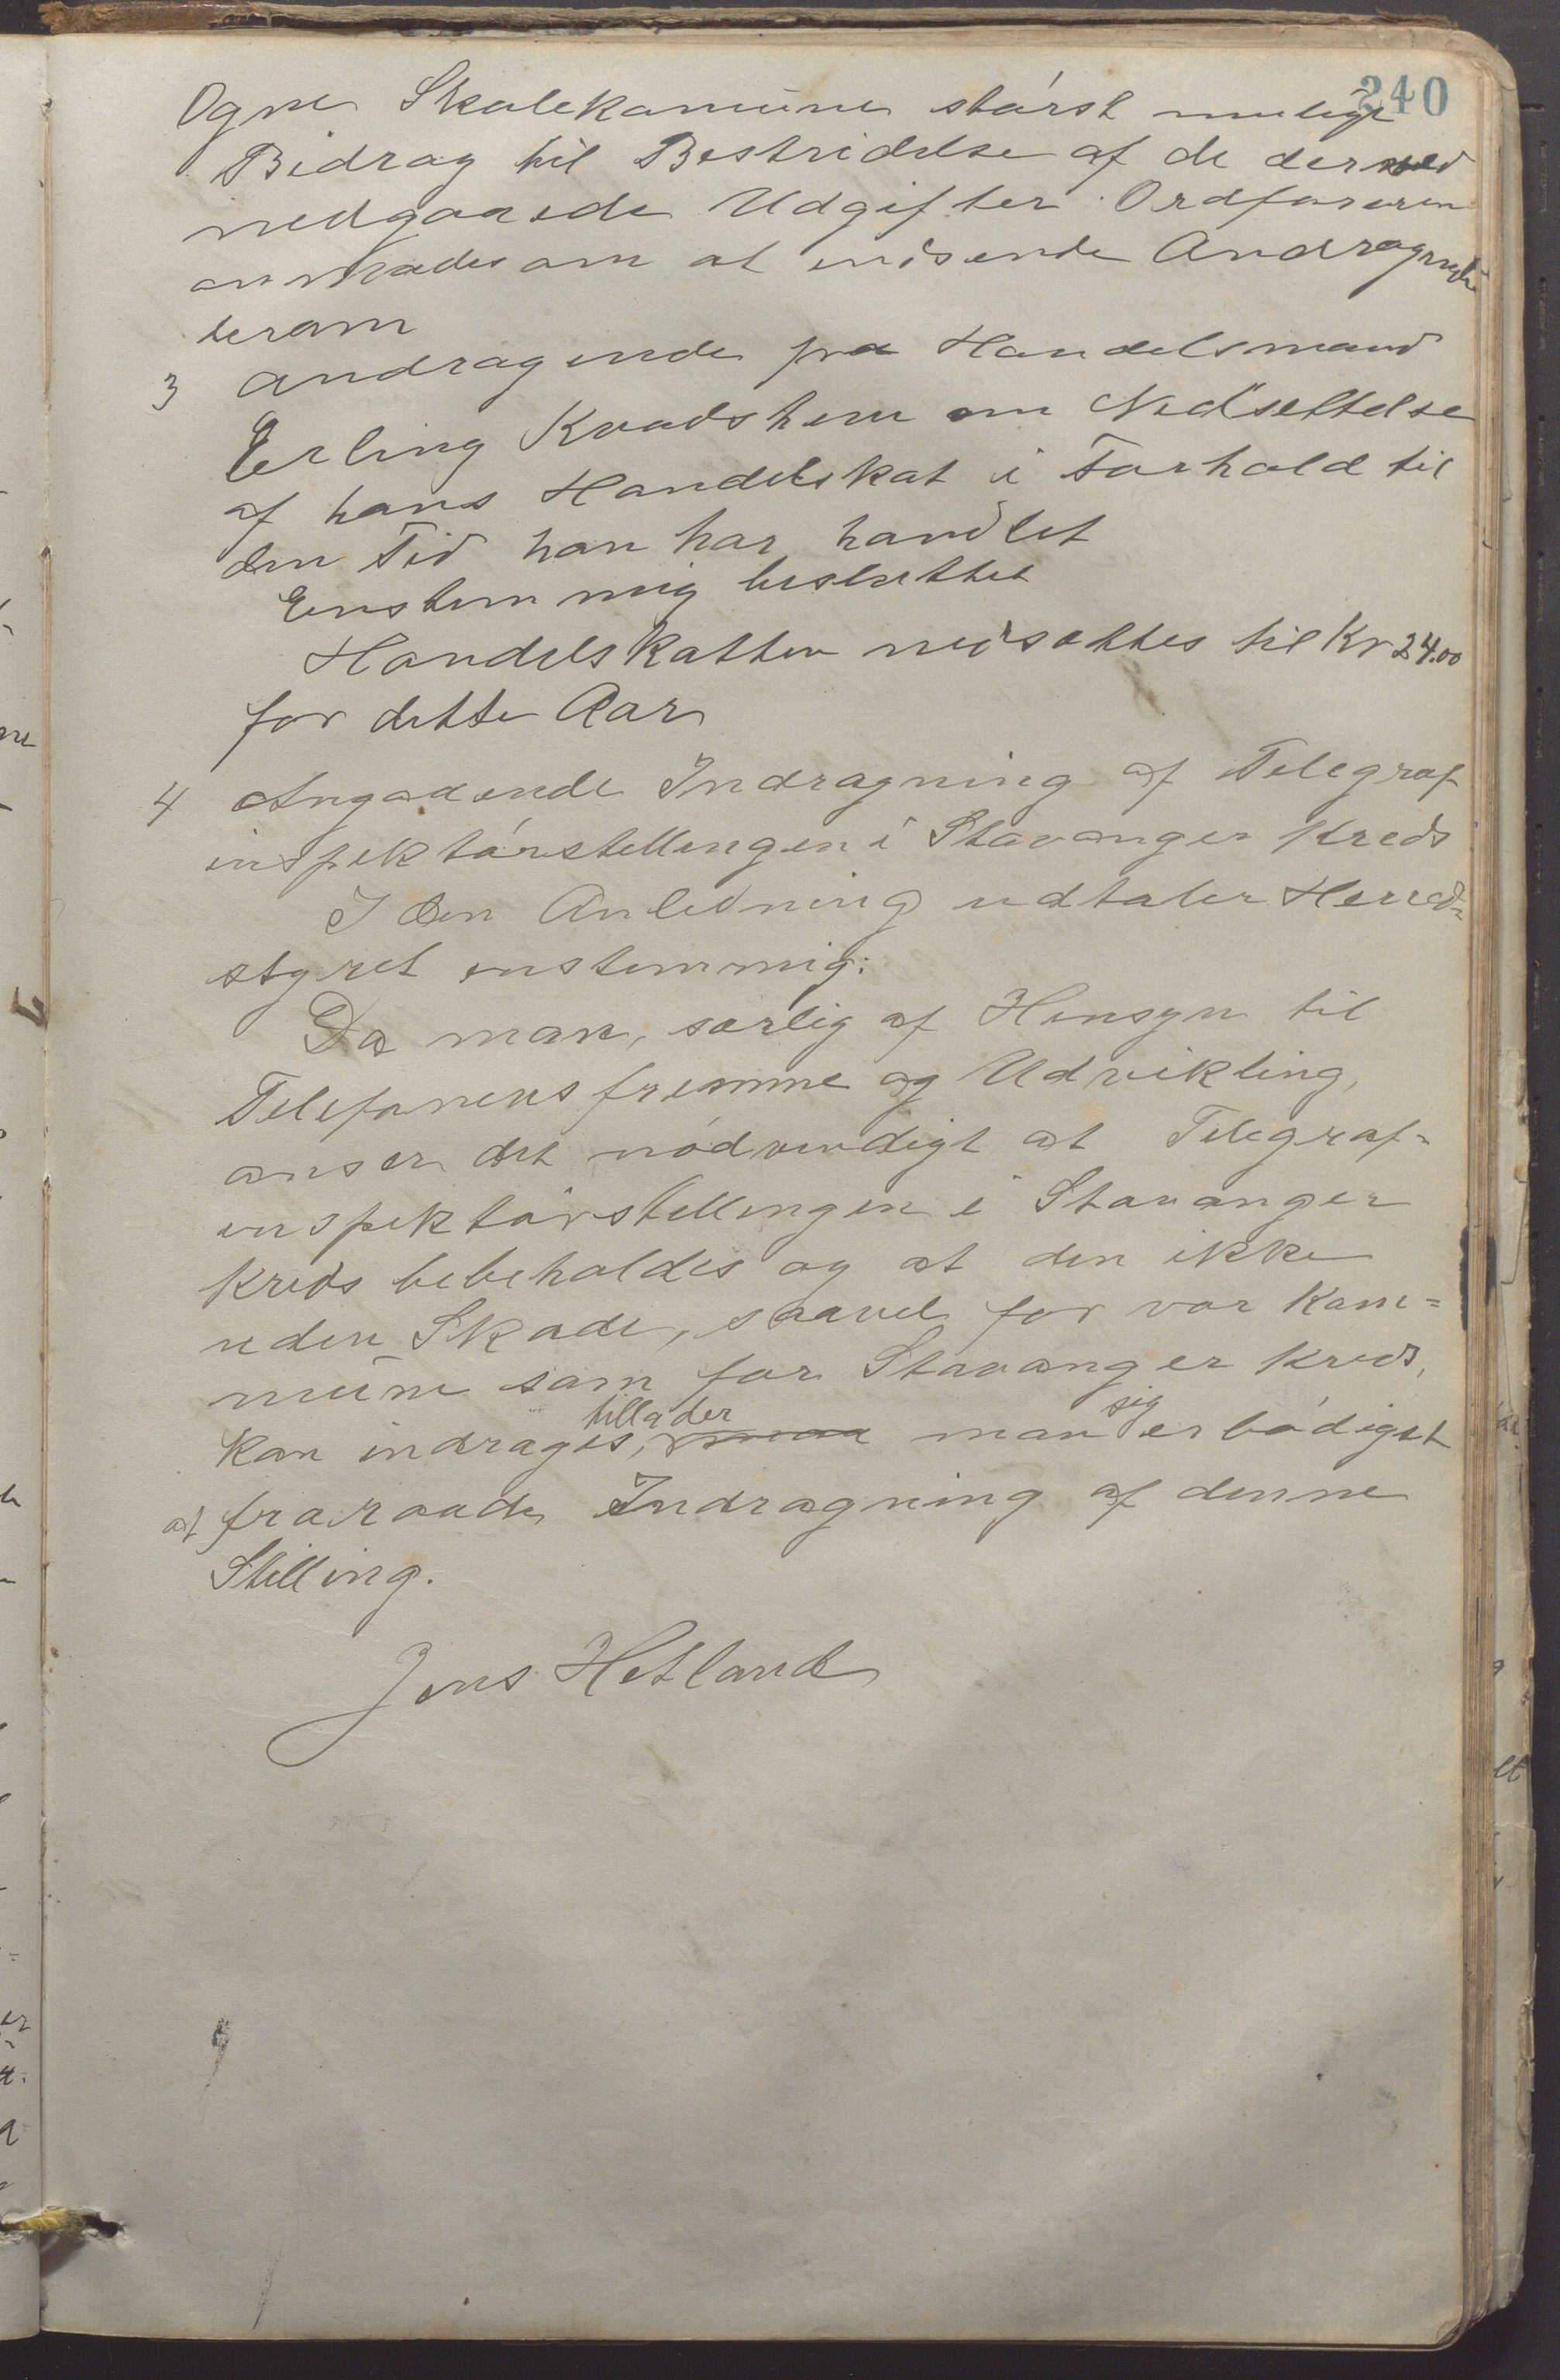 240
Ogne Skolekomune størst mulige
Bidrag til Bestridelse af de derved
medgaaede Udgifter. Ordføreren
anmodes om at indsende Andragende
derom
3 Andragende fra Handelsmand
Erling Kvadsheim om Nedsettelse
af hans Handelskat i Forhold til
den Tid han har handlet
Enstemmig besluttet
Handelskatten nedsættes til Kr 24.00
for dette Aar
4 Angaaende Indragning af Telegraf
inspektørstellingen i Stavanger Kreds
I den Anledning udtaler Herred=
styret enstemmig:
Da man, særlig af Hensyn til
Telefonens fremme og Udvikling,
anser det nødvendigt at Telegraf=
inspektørstillingen i Stavanger
Kreds bebeholdes og at den ikke
uden Skade, saavel for vor Kom=
mune som for Stavanger Kreds,
kan indrages, tillader man sig erbødigst
at fraraade Indragning af denne
Stilling.
Jens Hetland